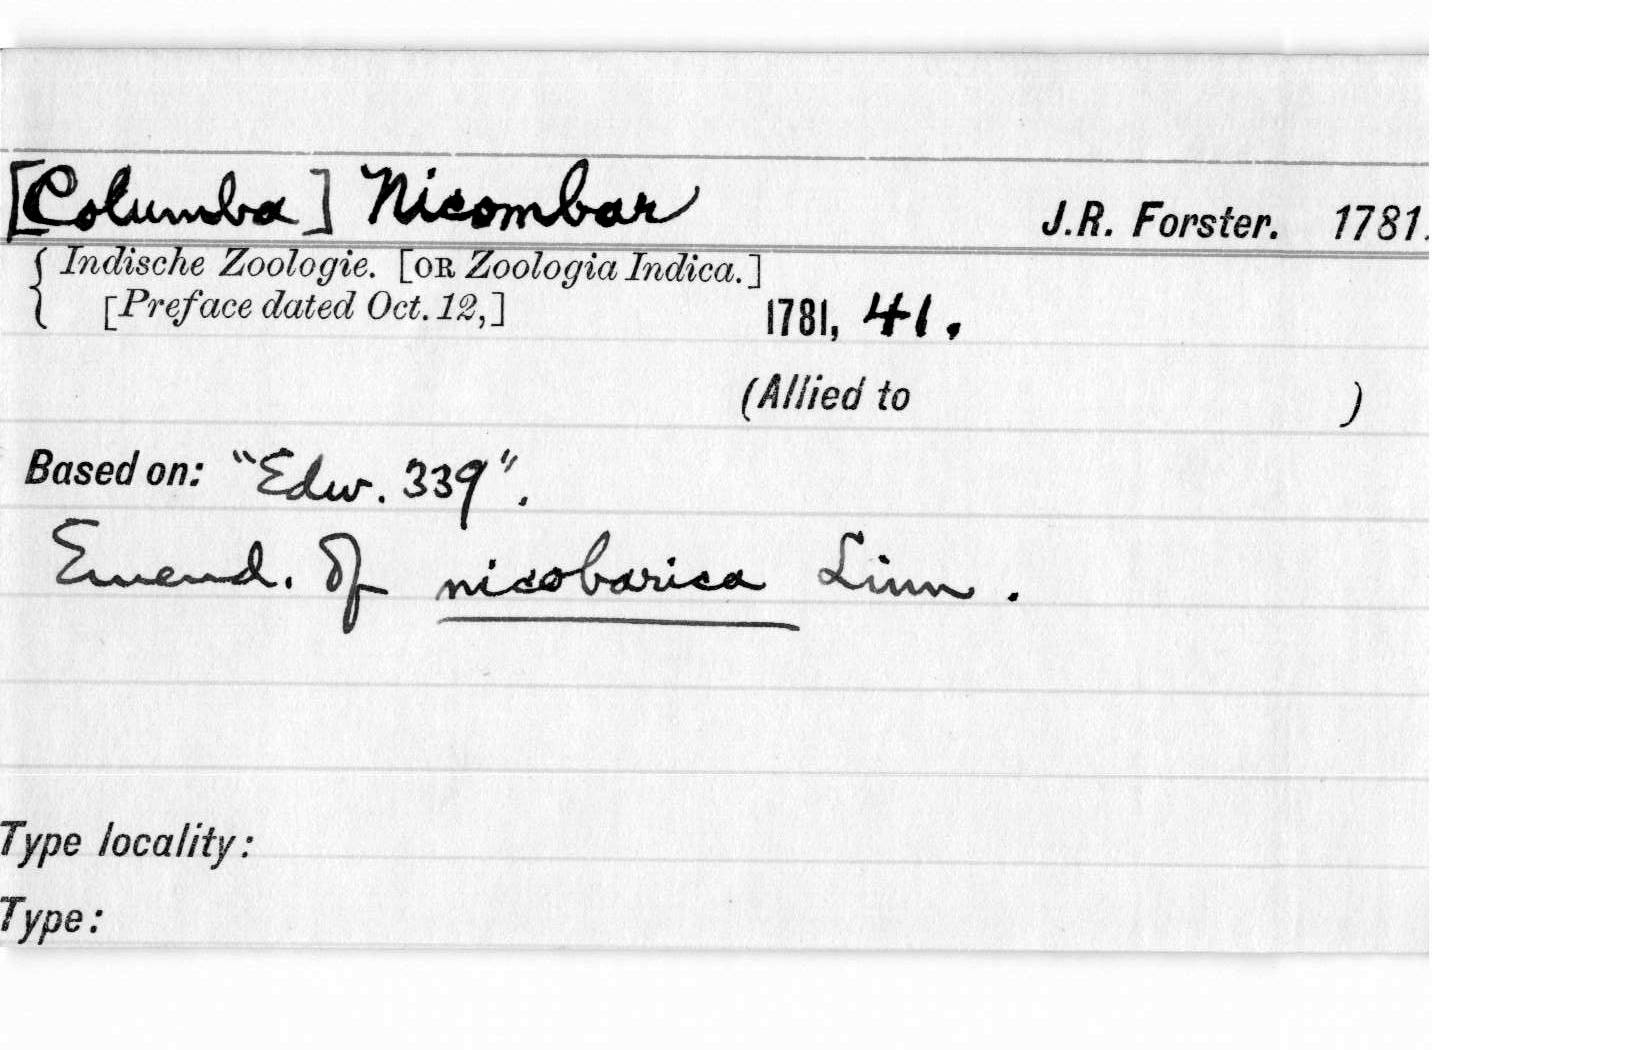 [Columba] Nicombar J.R. Forster. 1781.
{ Indische Zoologie. [OR Zoologia Indica.]
[Preface dated Oct. 12,] 1781, 41.
(Allied to )
Based on: "Edw. 339".
Emend. of nicobarica Linn.
Type locality:
Type: